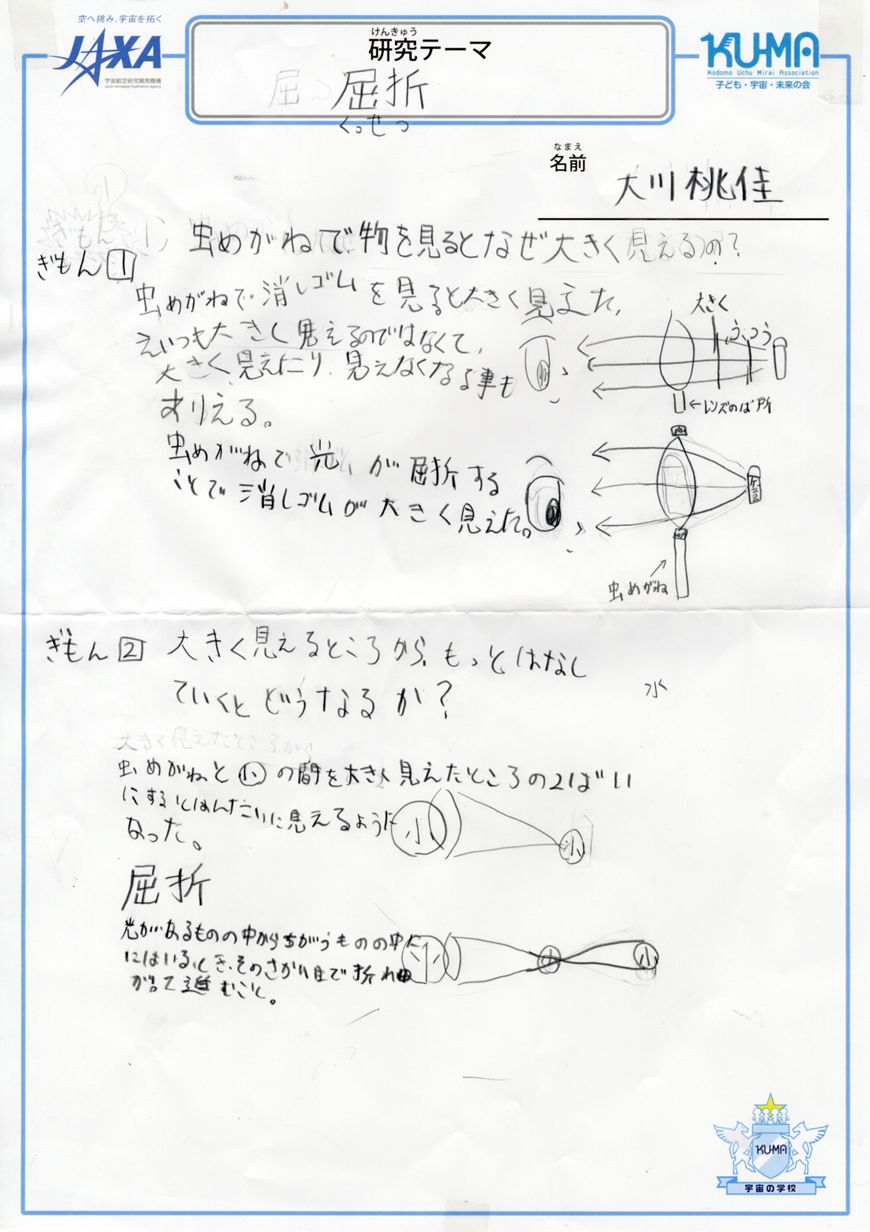 空へ挑み、宇宙を拓く
JAXA
宇宙航空研究開発機構
Japan Aerospace Exploration Agency
けんきゅう
研究テーマ
屈折
くっせつ
KU-MA
Kodomo Uchu Mirai Association
子ども・宇宙・未来の会
なまえ
名前
大川桃佳
ぎもん1 虫めがねで物を見るとなぜ大きく見えるの?
虫めがねで消しゴムを見ると大きく見えた,
いつも大きく見えるのではなくて,
大きく見えたり、見えなくなる事も
ありえる。
虫めがねで光が屈折する
ことで消しゴムが大きく見えた。
大きく
ふつう
←レンズのば所
虫めがね
ぎもん2 大きく見えるところから、もっとはなし
ていくとどうなるか?
水
大きく見えたところから
虫めがねと小の間を大きく見えたところの2ばい
にするとはんたいに見えるように
なった。
小
小
屈折
光があるものの中からちがうものの中に
にはいるとき、そのさかい目で折れ曲
がって進むこと。
小
小
小
KU-MA
宇宙の学校